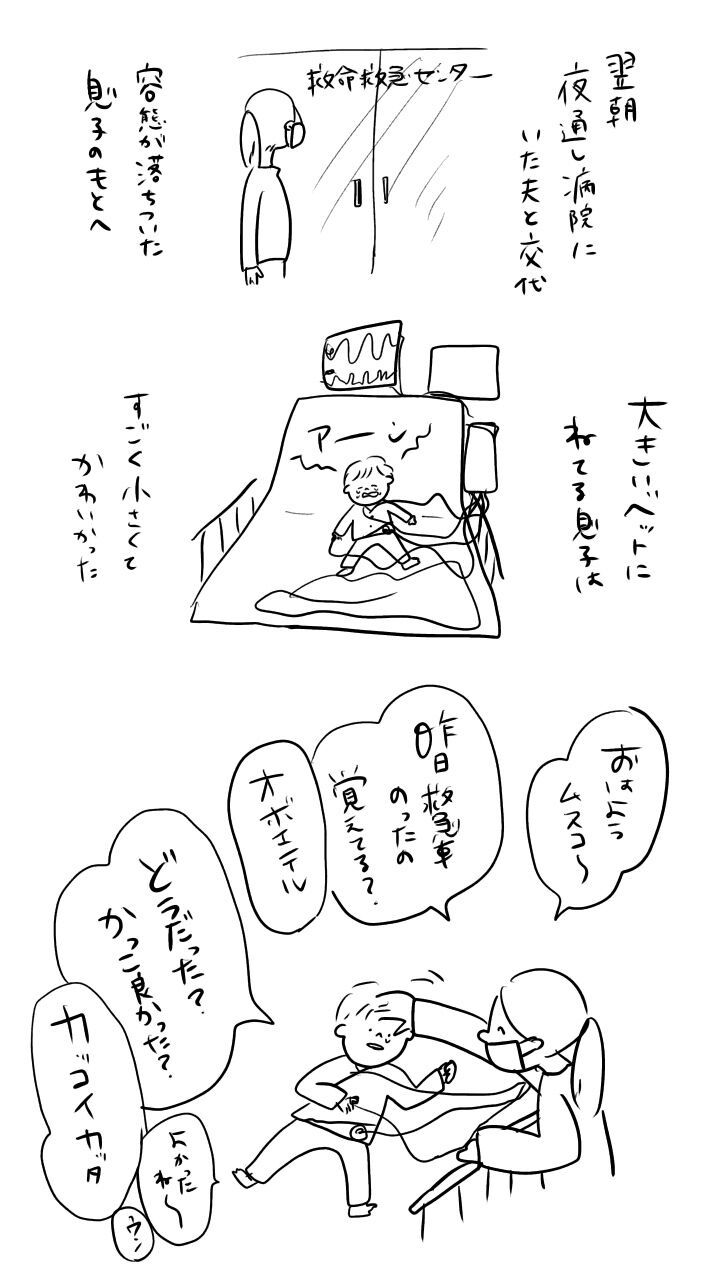 翌朝
夜通し病院に
いた夫と交代
救命救急センター
容態が落ちついた
息子のもとへ
大きいベットに
ねてる息子は
アーン
すごく小さくて
かわいかった
おはよう
ムスコ〜
昨日救急車
のったの
覚えてる？
オボエテル
どうだった？
かっこ良かった？
カッコイカッタ
よかった
ね〜
ウン